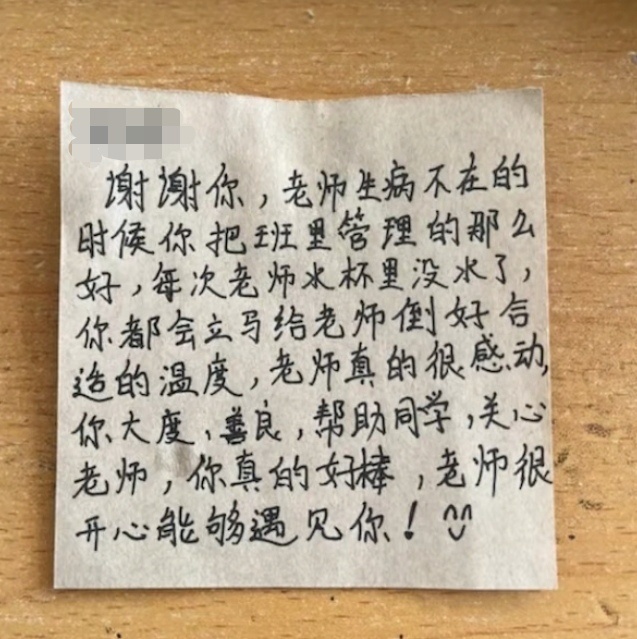 谢谢你，老师生病不在的
时候你把班里管理的那么
好，每次老师水杯里没水了，
你都会立马给老师倒好合
适的温度，老师真的很感动，
你大度、善良，帮助同学，关心
老师，你真的好棒，老师很
开心能够遇见你！